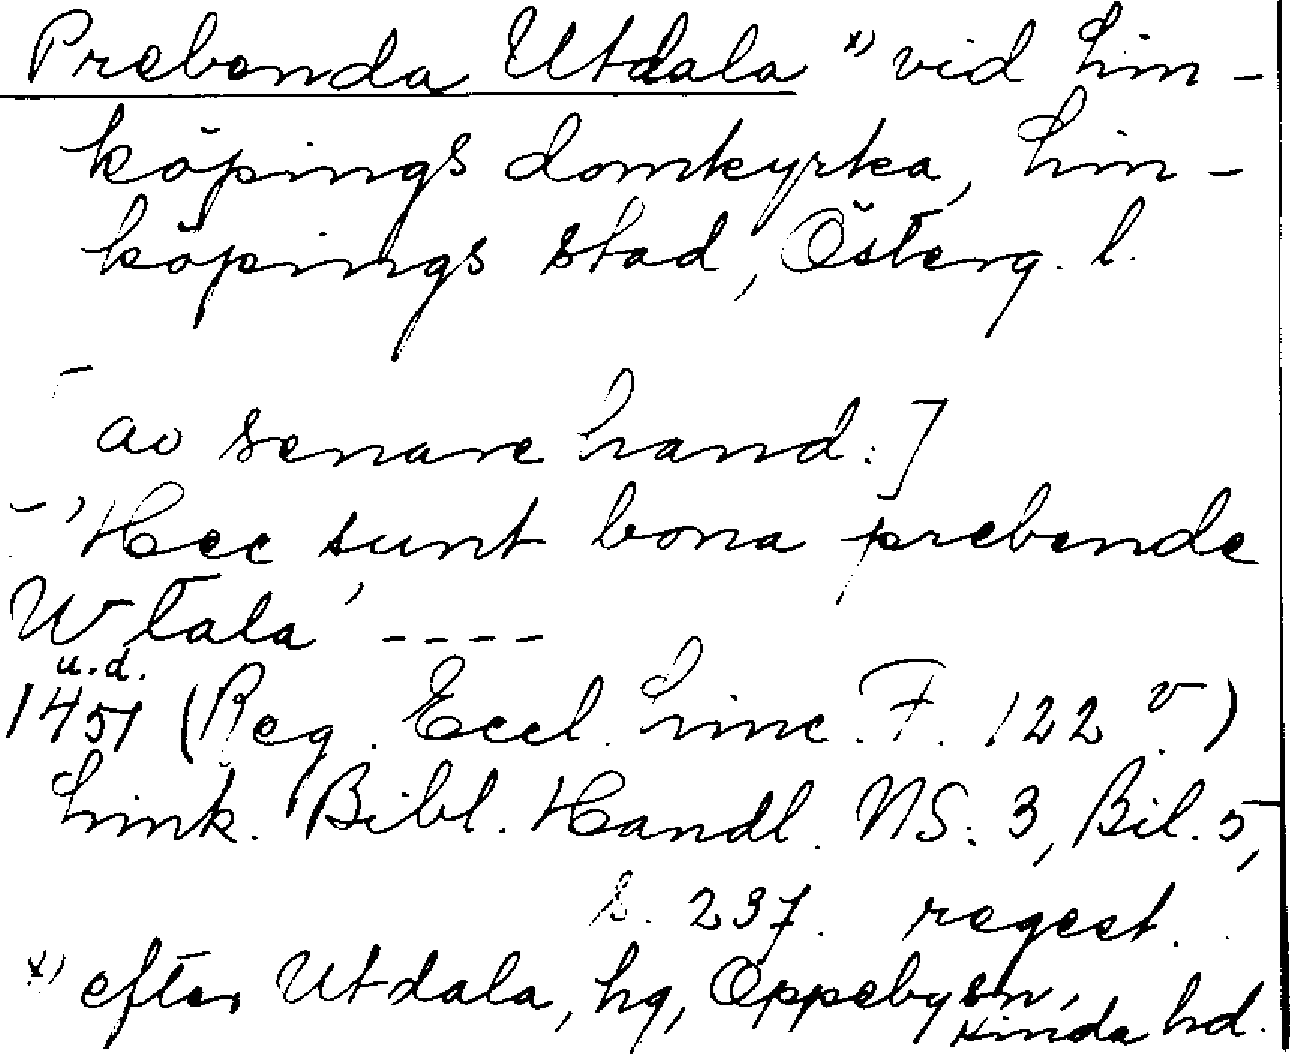 Prebenda Utdala x) vid Lin-
köpings domkyrka, Lin-
köpings stad, Österg. l.
[av senare hand:]
- 'Hec sunt bona prebende
Wtala' ----
u.d.
1451 (Reg. Eccl. Linc. F. 122 v.)
Link. Bibl. Handl. NS. 3, Bil. 5,
s. 237. regest.
x) efter Utdala, hg, Oppeby sn,
Kinda hd.